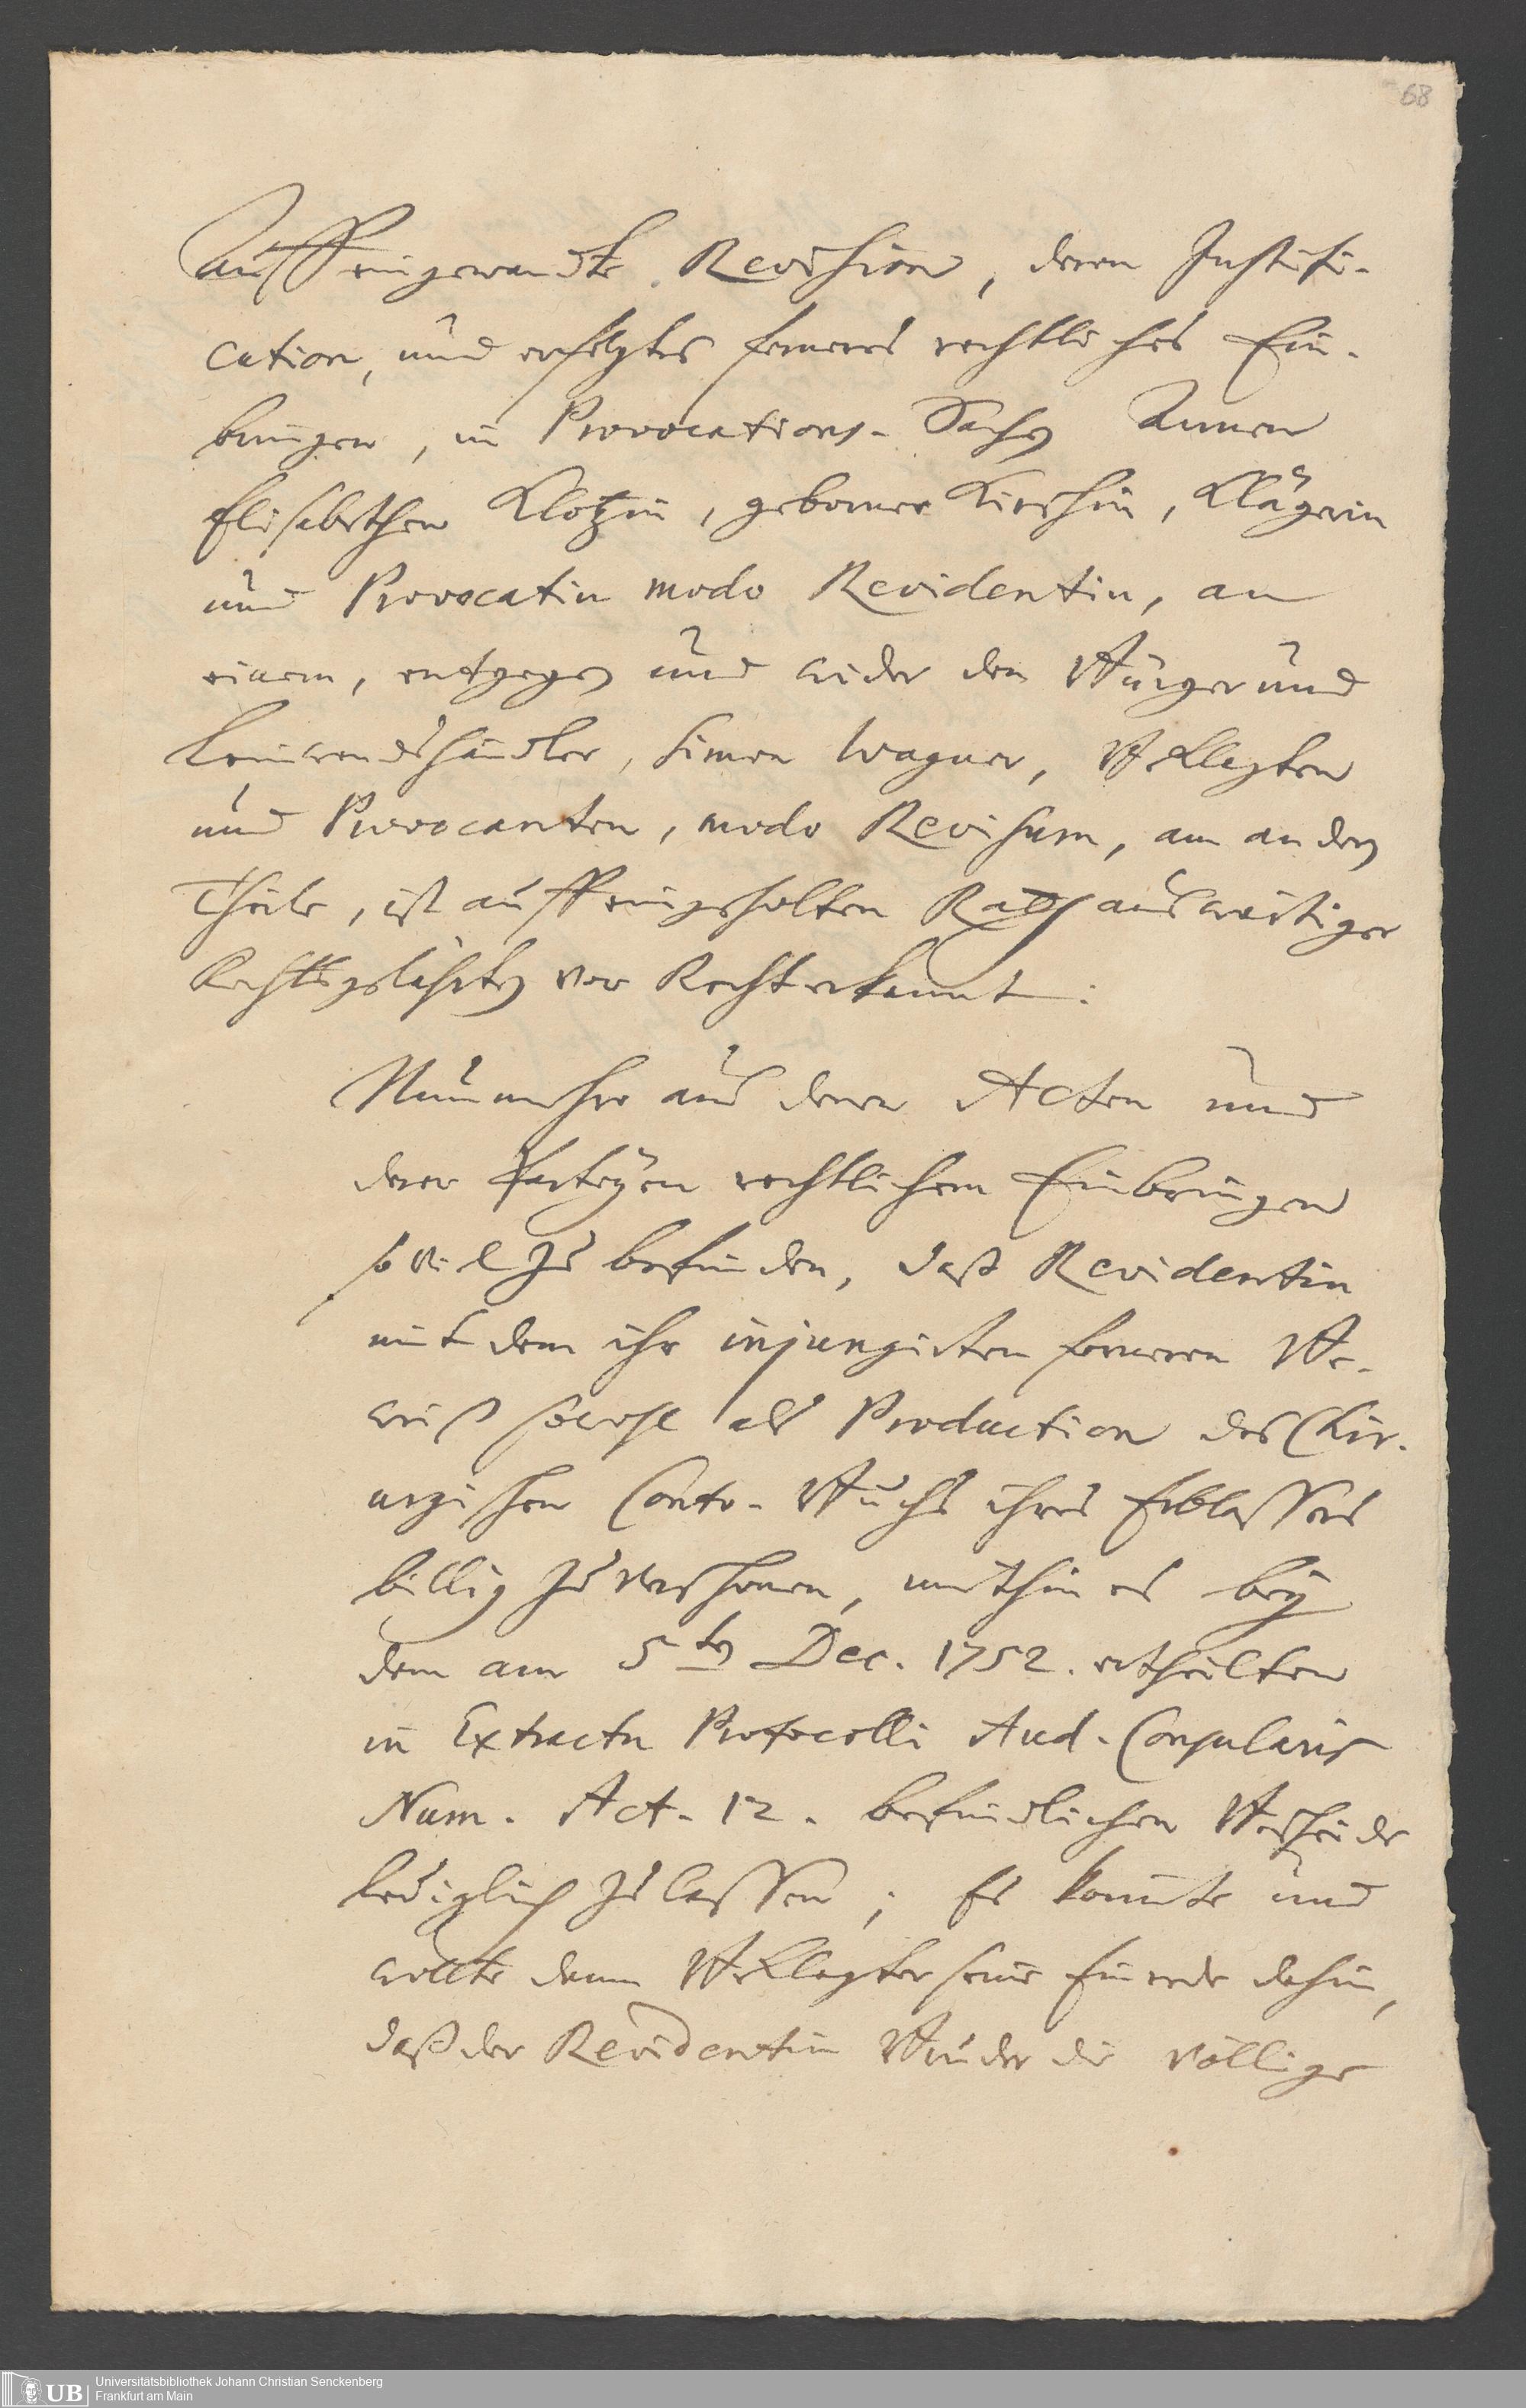 68
Auff eingewandte Revision, deren Justifi-
cation, und erfolgtes ferneres rechtliches Ein-
bringen, in Provocations-Sachen Annen
Elisabethen Klotzin, geborner Kirchin, Klägerin
und Provocatin modo Revidentin, an
einem, entgegen und wider den Bürger und
Leinwandshändler, Simon Wagner, Beklagten
und Provocanten, modo Revisum, am andern
Theile, ist auff eingeholten Rath auswärtiger
Rechtsgelehrten vor Recht erkannt:
Nunmehro aus denen Acten und
derer Partheyen rechtlichem Einbringen
so viel zu befinden, daß Revidentin
mit dem ihr injungirten ferneren Be-
weiß sowohl als Production des Chir-
urgischen Conto-Buchs ihres Erblassers
billig zu verschonen, mithin es bey
dem am 5ten Dec. 1752. ertheilten
in Extractu Protocolli Aud. Consularis
Num. Act. 12. befindlichen Bescheide
lediglich zu lassen; Es könnte und
wollte denn Beklagter seine Einrede dahin,
daß der Revidentin Bruder die völlige
Universitätsbibliothek Johann Christian Senckenberg
UB Frankfurt am Main